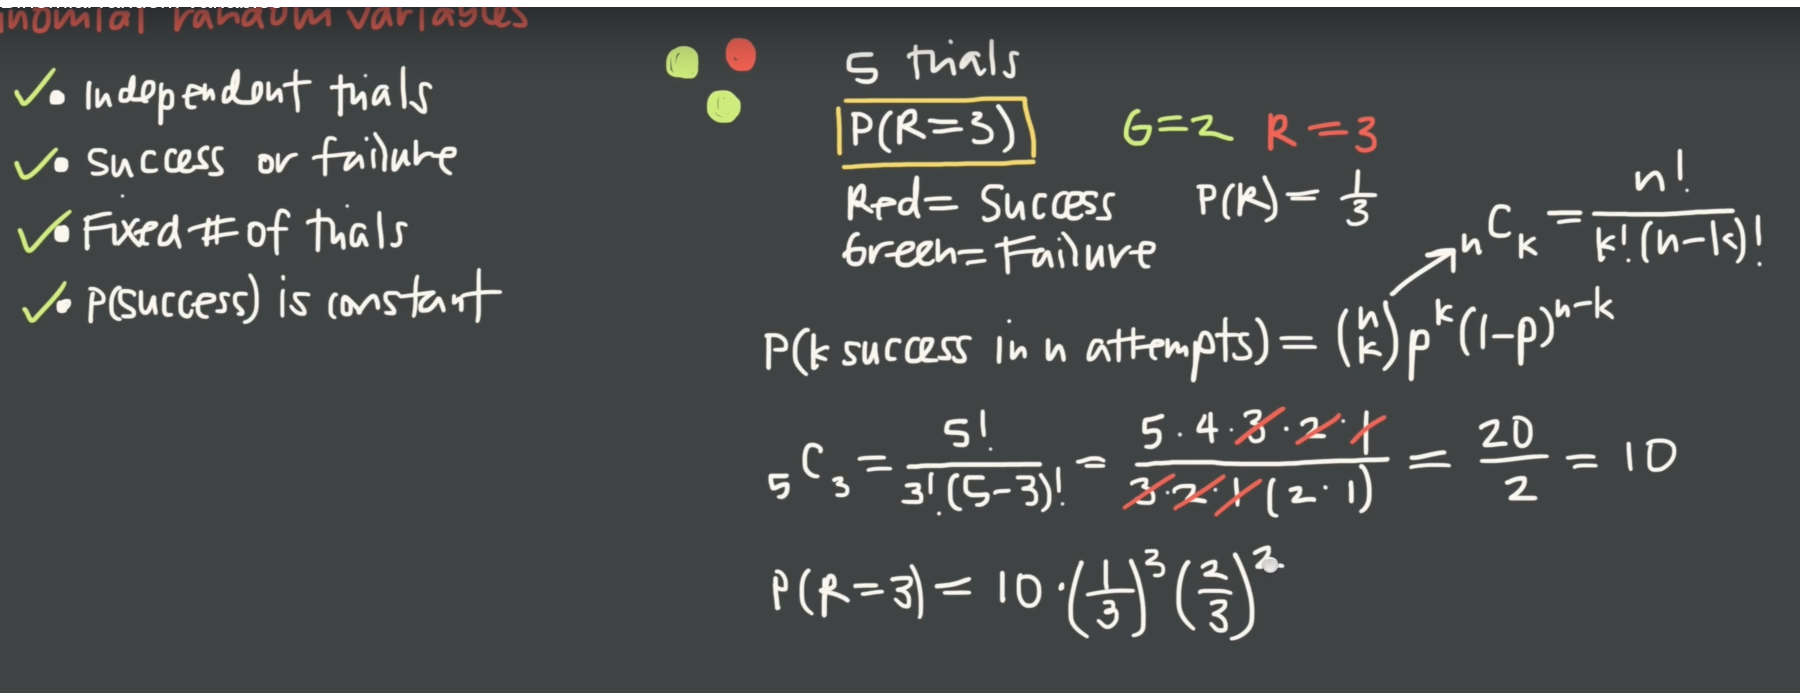 nomial random variables
✓• Independent trials
✓• Success or failure
✓• Fixed # of trials
✓• P(success) is constant
5 trials
P(R=3) G=2 R=3
Red = Success P(R) = 1/3
Green = Failure
nCk = n! / k!(n-k)!
P(k success in n attempts) = (n k) p^k (1-p)^n-k
5C3 = 5! / 3!(5-3)! = 5·4·3·2·1 / 3·2·1(2·1) = 20/2 = 10
P(R=3) = 10·(1/3)^3 (2/3)^2